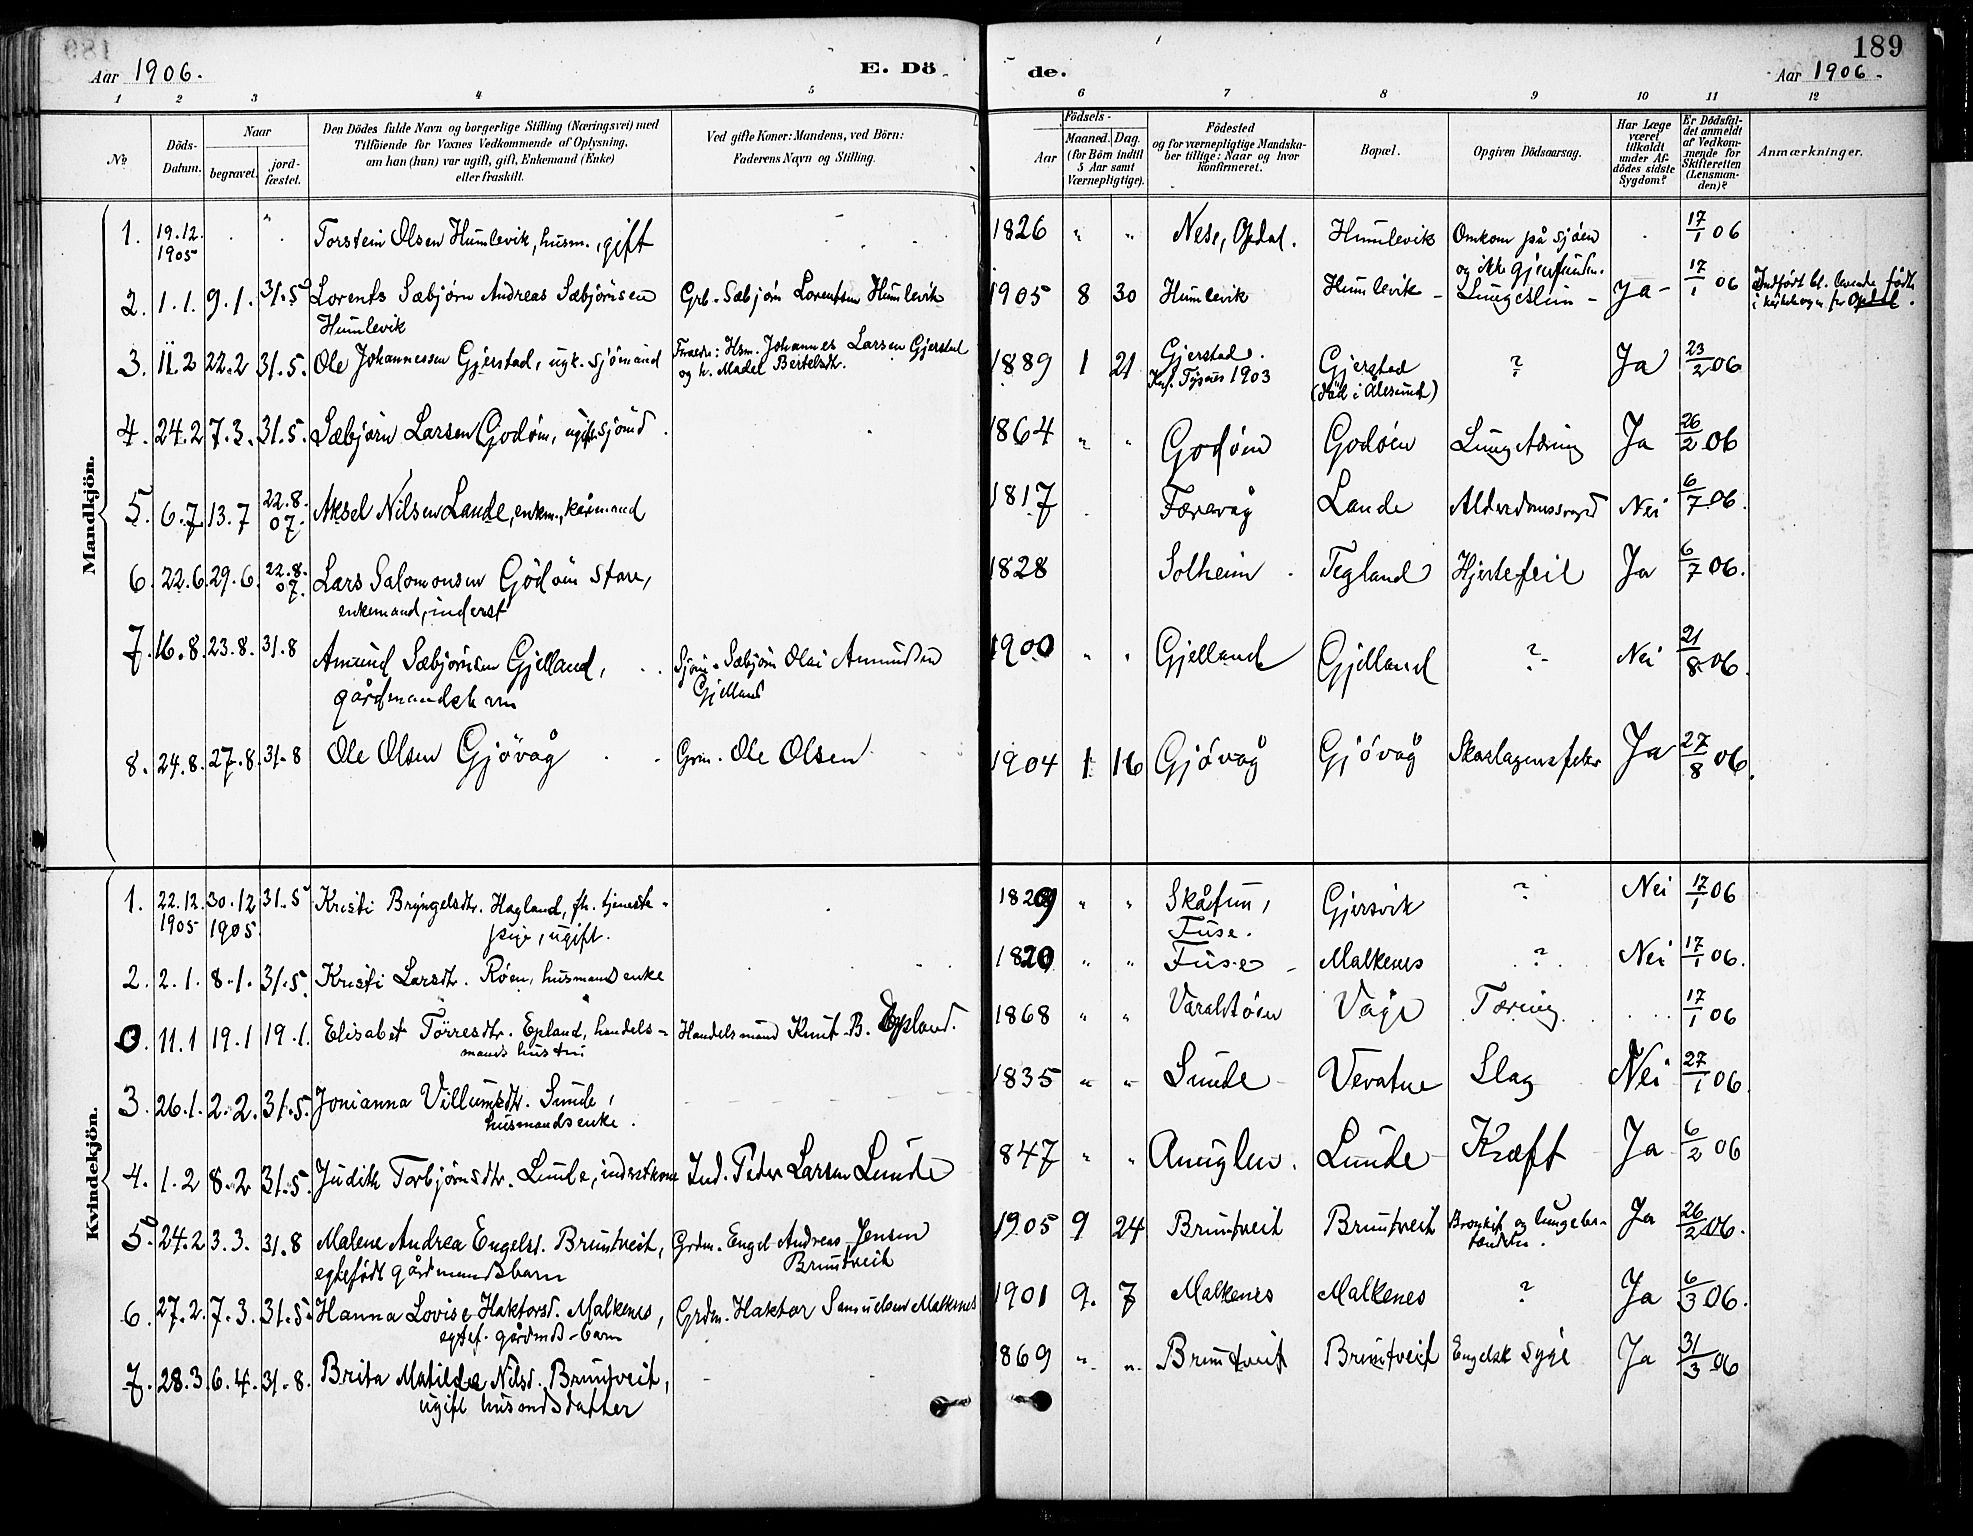 189
Aar 1906. E. Dö de. Aar 1906.
1 2 3 4 5 6 7 8 9 10 11 12
№
Döds-Datum.
Naar
begravet.
jordfæstet.
Den Dödes fulde Navn og borgerlige Stilling (Næringsvei) med
Tilföiende for Voxnes Vedkommende af Oplysning,
om han (hun) var ugift, gift, Enkemand (Enke)
eller fraskilt.
Ved gifte Koner: Mandens, ved Börn:
Faderens Navn og Stilling.
Födsels-
Aar
Maaned. Dag.
(for Börn indtil
5 Aar samt
Værnepligtige).
Födested
og for værnepligtige Mandska-
ber tillige: Naar og hvor
konfirmeret.
Bopæl.
Opgiven Dödsaarsag.
Har Læge
været
tilkaldt
under Af-
dödes sidste
Sygdom?
Er Dödsfal-
det anmeldt
af Vedkom-
mende for
Skifteretten
(Lensman-
den)?
Anmærkninger.
Mandkjön.
1. 19.12. 1905 " Torstein Olsen Humlevik, husm., gift 1826 " " Nese, Opdal. Humlevik Omkom på sjöen og ikke gjenfunden. 17/1 06
2. 1.1. 9.1. 31.5 Lorents Sæbjörn Andreas Sæbjörnsen Humlevik Grb. Sæbjörn Lorentsen Humlevik 1905 8 30 Humlevik Humlevik - Ja - 17/1 06 Indfört bl. levende födte i kirkebogen for Opdal.
3. 11.2 22.2 31.5. Ole Johannessen Gjerstad, ugk. sjömand Forældre: Hsm. Johannes Larsen Gjerstad og h. Madel Bertelsdtr. 1889 1 21 Gjerstad. Knf. Tysnes 1903 Gjerstad (död i Ålesund) ? Ja 23/2 06
4. 24.2 7.3. 31.5. Sæbjörn Larsen Godöen, ugift sjömd 1864 " " Godöen Godöen Lungetæring Ja 26/2 06
5. 6.7 13.7 22.8. 07. Aksel Nilsen Lande, enkm., kårmand 1817 Færevåg Lande Alderdomssvaghed Nei 6/7 06.
6. 22.6. 29.6. 22.8. 07. Lars Salomonsen Godöen Store, enkemand, inderst 1828 Solheim Tegland Hjertefeil Ja 6/7 06.
7. 16.8. 23.8. 31.8 Amund Sæbjörnsen Gjelland, gårdmandsbarn Sæbjörn Olai Amundsen Gjelland 1900 " " Gjelland Gjelland ? Nei 21/8 06.
8. 24.8. 27.8. 31.8 Ole Olsen Gjövåg Grm. Ole Olsen 1904 1 16 Gjövåg Gjövåg Skarlagensfeber Ja 27/8 06.
Kvindekjön.
1. 22.12. 1905 30.12 1905. 31.5 Kristi Bryngelsdtr. Hagland, fh. tjeneste-pige, ugift. 1829 " " Skåtun, Fuse. Gjersvik ? Nei 17/1 06
2. 2.1. 8.1. 31.5. Kristi Larsdtr. Röen, husmandsenke 1820 " " Fuse - Malkenes ? Nei 17/1 06.
0. 11.1 19.1 19.1. Elisabet Törresdtr. Epland, handels-mands hustru Handelsmand Knut B. Epland. 1868 " " Varaldsöen Våge Tæring 17/1 06
3. 26.1. 2.2. 31.5. Jonianna Villumsdtr. Sunde, husmandsenke. 1835 " " Sunde Vevatne Slag Nei 27/1 06.
4. 1.2 8.2 31.5. Judith Torbjörnsdtr. Lunde, inderstkone Ind. Peder Larsen Lunde 1847 " " Anuglen. Lunde Kræft Ja 6/2 06
5. 24.2 3.3. 31.8 Malene Andrea Engelsd. Bruntveit, egtefödt gårdmandsbarn Grdm. Engel Andreas Jensen Bruntveit 1905 9 24 Bruntveit Bruntveit Bronkit og lungebe-tændelse. Ja 26/2 06.
6. 27.2. 7.3. 31.5. Hanna Lovise Haktorsd. Malkenes, egtef. gårdmds-barn Grdm. Haktor Samuelsen Malkenes 1901 9. 7 Malkenes Malkenes ? Ja 6/3 06.
7. 28.3. 6.4. 31.8. Brita Matilda Nilsd. Bruntveit, ugift husmdsdatter 1869 " " Bruntveit Bruntveit Engelsk Syge Ja 31/3 06